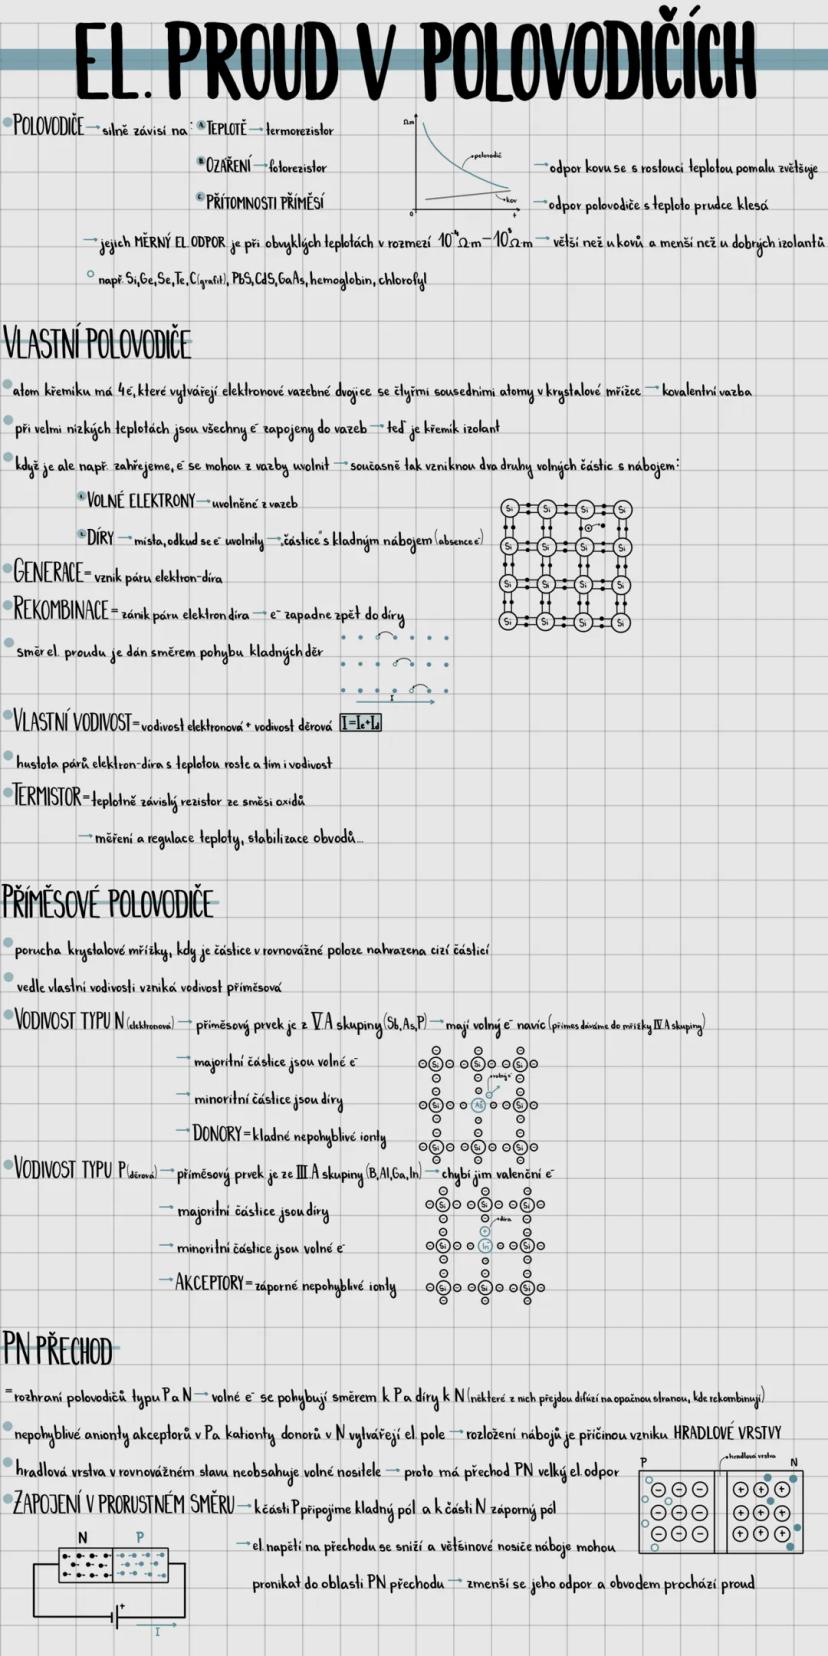 EL. PROUD V POLOVODIČÍCH
POLOVODIČE → silně závisí na: A TEPLOTĚ → termorezistor
B OZÁŘENÍ → fotorezistor
C PŘÍTOMNOSTI PŘÍMĚSÍ
Ωm
polovodič
kov
0
t
→ odpor kovu se s rostoucí teplotou pomalu zvětšuje
→ odpor polovodiče s teploto prudce klesá
→ jejich MĚRNÝ EL. ODPOR je při obvyklých teplotách v rozmezí 10⁻⁴Ωm – 10⁸Ωm → větší než u kovů a menší než u dobrých izolantů
např. Si, Ge, Se, Te, C (grafit), PbS, CdS, GaAs, hemoglobin, chlorofyl
VLASTNÍ POLOVODIČE
atom křemíku má 4e⁻, které vytvářejí elektronové vazebné dvojice se čtyřmi sousedními atomy v krystalové mřížce → kovalentní vazba
při velmi nízkých teplotách jsou všechny e⁻ zapojeny do vazeb → teď je křemík izolant
když je ale např. zahřejeme, e⁻ se mohou z vazby uvolnit → současně tak vzniknou dva druhy volných částic s nábojem:
VOLNÉ ELEKTRONY → uvolněné z vazeb
DÍRY → místa, odkud se e⁻ uvolnily → „částice“ s kladným nábojem (absence e⁻)
Si Si Si Si
Si Si Si Si
Si Si Si Si
Si Si Si Si
GENERACE = vznik páru elektron-díra
REKOMBINACE = zánik páru elektron díra → e⁻ zapadne zpět do díry
směr el. proudu je dán směrem pohybu kladných děr
I
VLASTNÍ VODIVOST = vodivost elektronová + vodivost děrová I = Iₑ + I_d
hustota párů elektron-díra s teplotou roste a tím i vodivost
TERMISTOR = teplotně závislý rezistor ze směsi oxidů
→ měření a regulace teploty, stabilizace obvodů...
PŘÍMĚSOVÉ POLOVODIČE
porucha krystalové mřížky, kdy je částice v rovnovážné poloze nahrazena cizí částicí
vedle vlastní vodivosti vzniká vodivost příměsová
VODIVOST TYPU N (elektronová) → příměsový prvek je z V.A skupiny (Sb, As, P) → mají volný e⁻ navíc (příměs dáváme do mřížky IV.A skupiny)
→ majoritní částice jsou volné e⁻
→ minoritní částice jsou díry
→ DONORY = kladné nepohyblivé ionty
Si Si Si
volný e⁻
Si As Si
Si Si Si
VODIVOST TYPU P (děrová) → příměsový prvek je ze III.A skupiny (B, Al, Ga, In) → chybí jim valenční e⁻
→ majoritní částice jsou díry
→ minoritní částice jsou volné e⁻
→ AKCEPTORY = záporné nepohyblivé ionty
Si Si Si
díra
Si In Si
Si Si Si
PN PŘECHOD
= rozhraní polovodičů typu P a N → volné e⁻ se pohybují směrem k P a díry k N (některé z nich přejdou difúzí na opačnou stranou, kde rekombinují)
nepohyblivé anionty akceptorů v P a kationty donorů v N vytvářejí el. pole → rozložení nábojů je příčinou vzniku HRADLOVÉ VRSTVY
hradlová vrstva v rovnovážném stavu neobsahuje volné nositele → proto má přechod PN velký el. odpor
P hradlová vrstva N
ZAPOJENÍ V PRORUSTNÉM SMĚRU → k části P připojíme kladný pól a k části N záporný pól
→ el. napětí na přechodu se sníží a většinové nosiče náboje mohou
pronikat do oblasti PN přechodu → zmenší se jeho odpor a obvodem prochází proud
N P
+
I